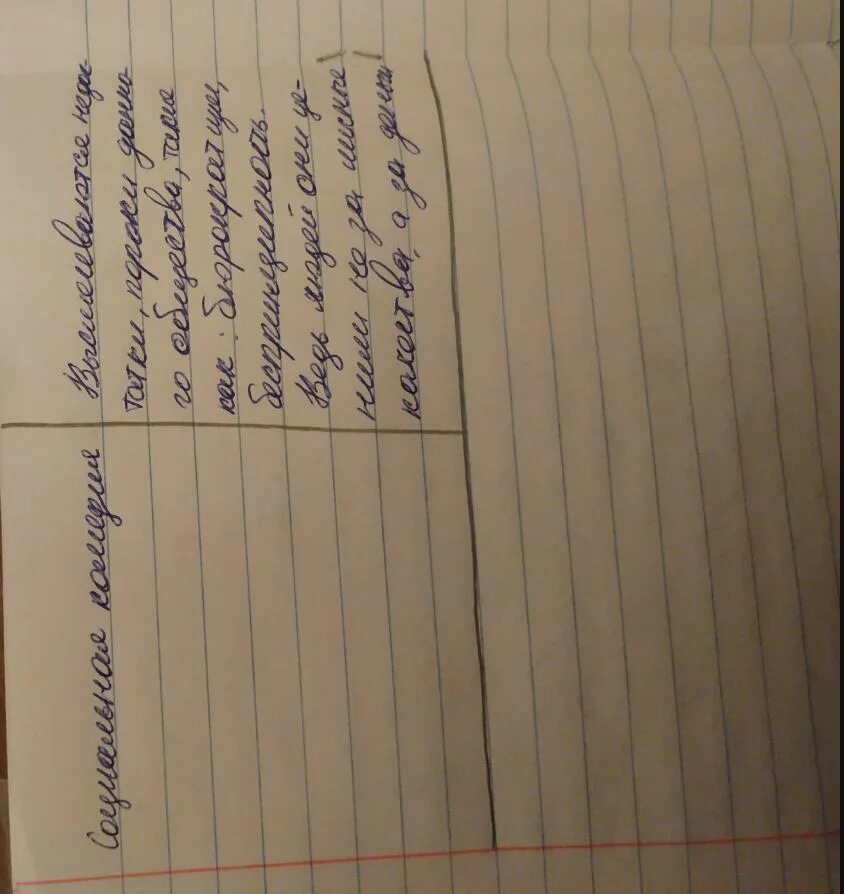 Социальная комедия
Высмеиваются недос-
татки, пороки данно-
го общества, такие
как: бюрократия,
беспринципность.
Ведь людей они це-
нили не за личные
качества, а за деньги